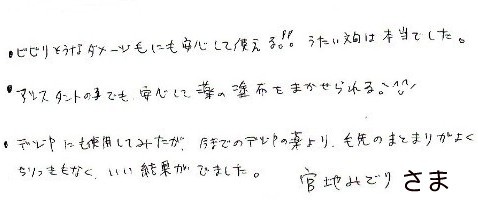 ・ビビリそうなダメージ毛にも安心して使える!! うたい文句は本当でした。
・アシスタントの子でも、安心して薬の塗布をまかせられる。^^
・デジパーにも使用してみたが、今までのデジパーの薬より、毛先のまとまりがよく
ちりつきもなく、いい結果がでました。
宮地みどり さま